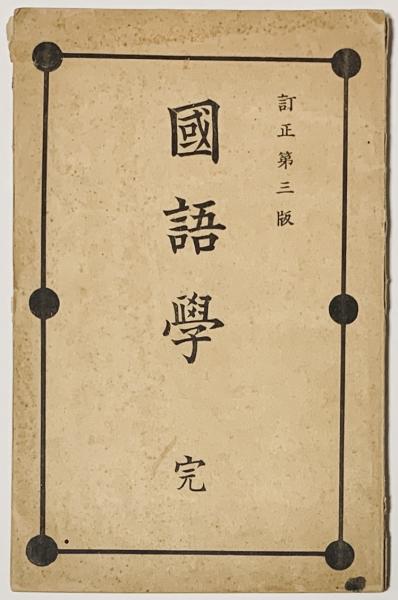 訂正第三版
國語學
完